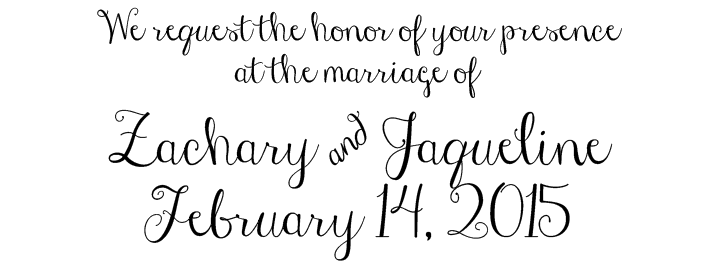 We request the honor of your presence
at the marriage of
Zachary and Jaqueline
February 14, 2015